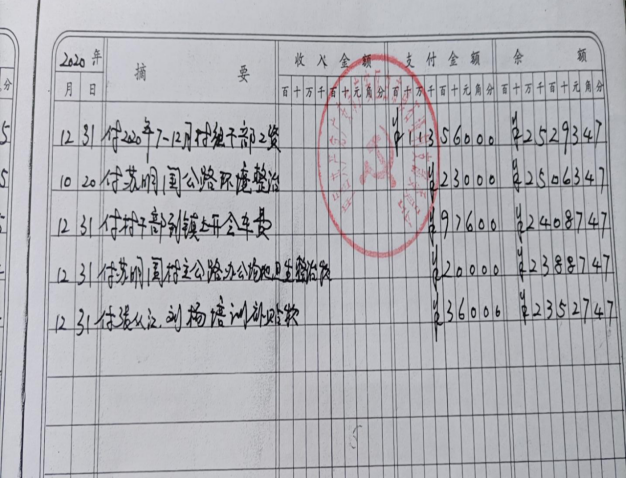 2020年 摘 要 收入金额 支付金额 余 额
月 日 百十万千百十元角分 百十万千百十元角分 百十万千百十元角分
12 31 付2020年7-12月村组干部工资 ¥11356000 ¥2529347
10 20 付苏明国公路环境整治 ¥23000 ¥2506347
12 31 付村干部到镇上开会车费 ¥97600 ¥2408747
12 31 付苏明国村主公路办公场地卫生整治款 ¥20000 ¥2388747
12 31 付张从江.刘杨培训补贴款 ¥36000 ¥2352747